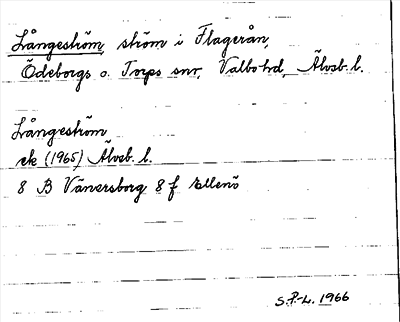 Långeström, ström i Flagerån,
Ödeborgs o. Torps snr, Valbo hd, Älvsb. l.
Långeström
ek (1965) Älvsb. l.
8 B Vänersborg 8 f Ellenö
S.P-L. 1966